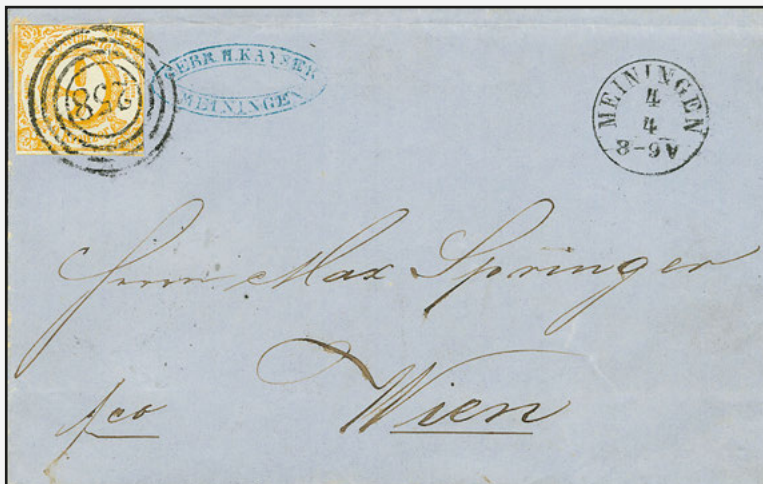 258
GEBR. H. KAYSER
MEININGEN
MEININGEN
4
4
A6-8
Herrn Max Springer
fco Wien